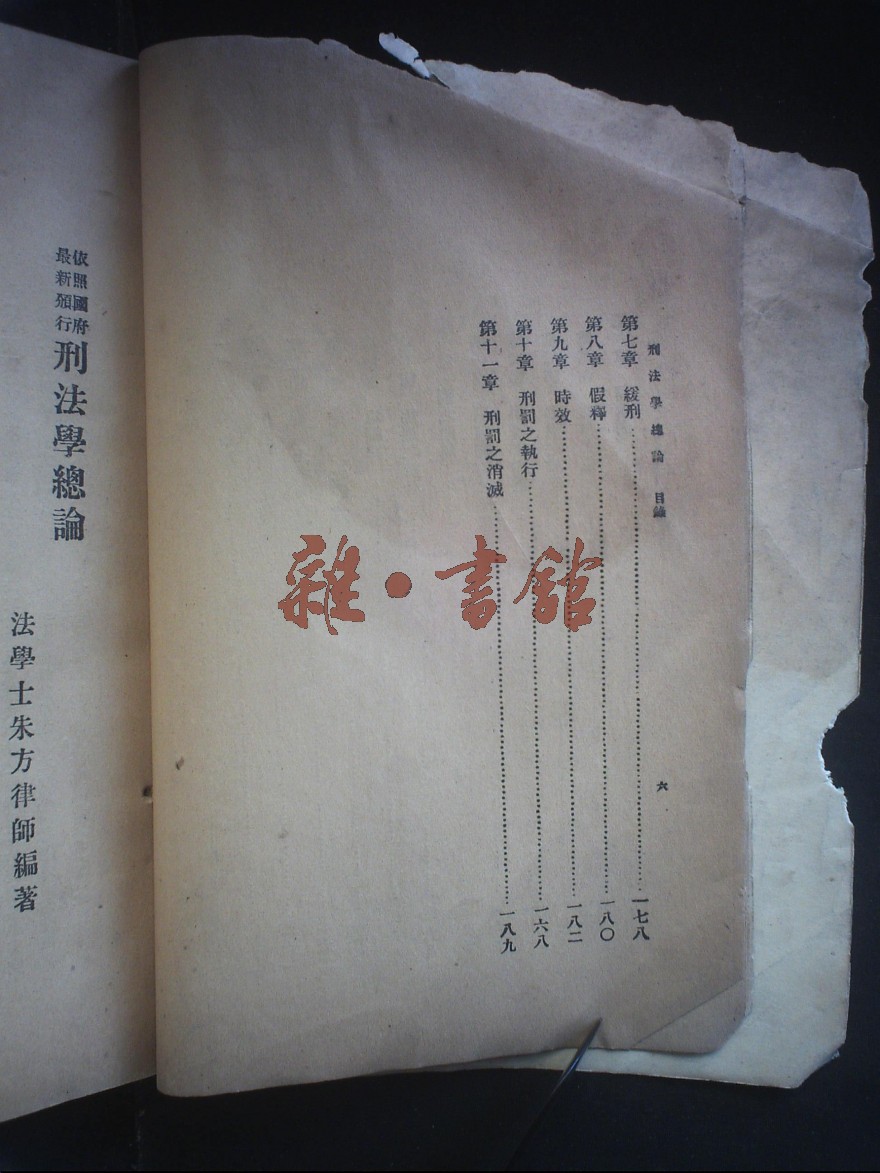 刑法學總論 目錄
六
第七章 緩刑……一七八
第八章 假釋……一八〇
第九章 時效……一八二
第十章 刑罰之執行……一六八
第十一章 刑罰之消滅……一八九
依照國府
最新頒行
刑法學總論
法學士朱方律師編著
雜·書館